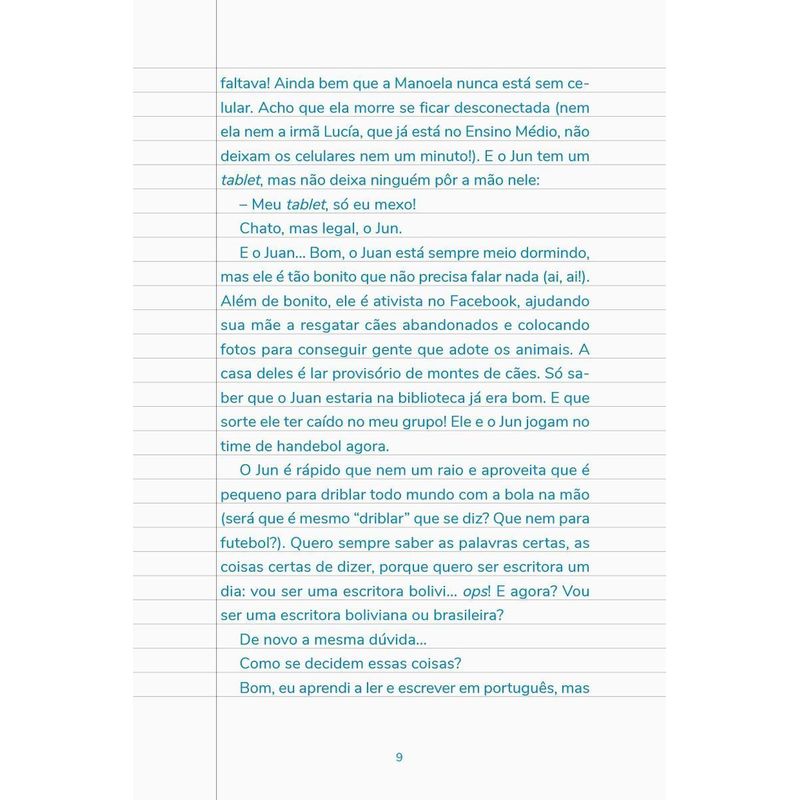 faltava! Ainda bem que a Manoela nunca está sem ce-
lular. Acho que ela morre se ficar desconectada (nem
ela nem a irmã Lucía, que já está no Ensino Médio, não
deixam os celulares nem um minuto!). E o Jun tem um
tablet, mas não deixa ninguém pôr a mão nele:
– Meu tablet, só eu mexo!
Chato, mas legal, o Jun.
E o Juan... Bom, o Juan está sempre meio dormindo,
mas ele é tão bonito que não precisa falar nada (ai, ai!).
Além de bonito, ele é ativista no Facebook, ajudando
sua mãe a resgatar cães abandonados e colocando
fotos para conseguir gente que adote os animais. A
casa deles é lar provisório de montes de cães. Só sa-
ber que o Juan estaria na biblioteca já era bom. E que
sorte ele ter caído no meu grupo! Ele e o Jun jogam no
time de handebol agora.
O Jun é rápido que nem um raio e aproveita que é
pequeno para driblar todo mundo com a bola na mão
(será que é mesmo “driblar” que se diz? Que nem para
futebol?). Quero sempre saber as palavras certas, as
coisas certas de dizer, porque quero ser escritora um
dia: vou ser uma escritora bolivi... ops! E agora? Vou
ser uma escritora boliviana ou brasileira?
De novo a mesma dúvida...
Como se decidem essas coisas?
Bom, eu aprendi a ler e escrever em português, mas
9